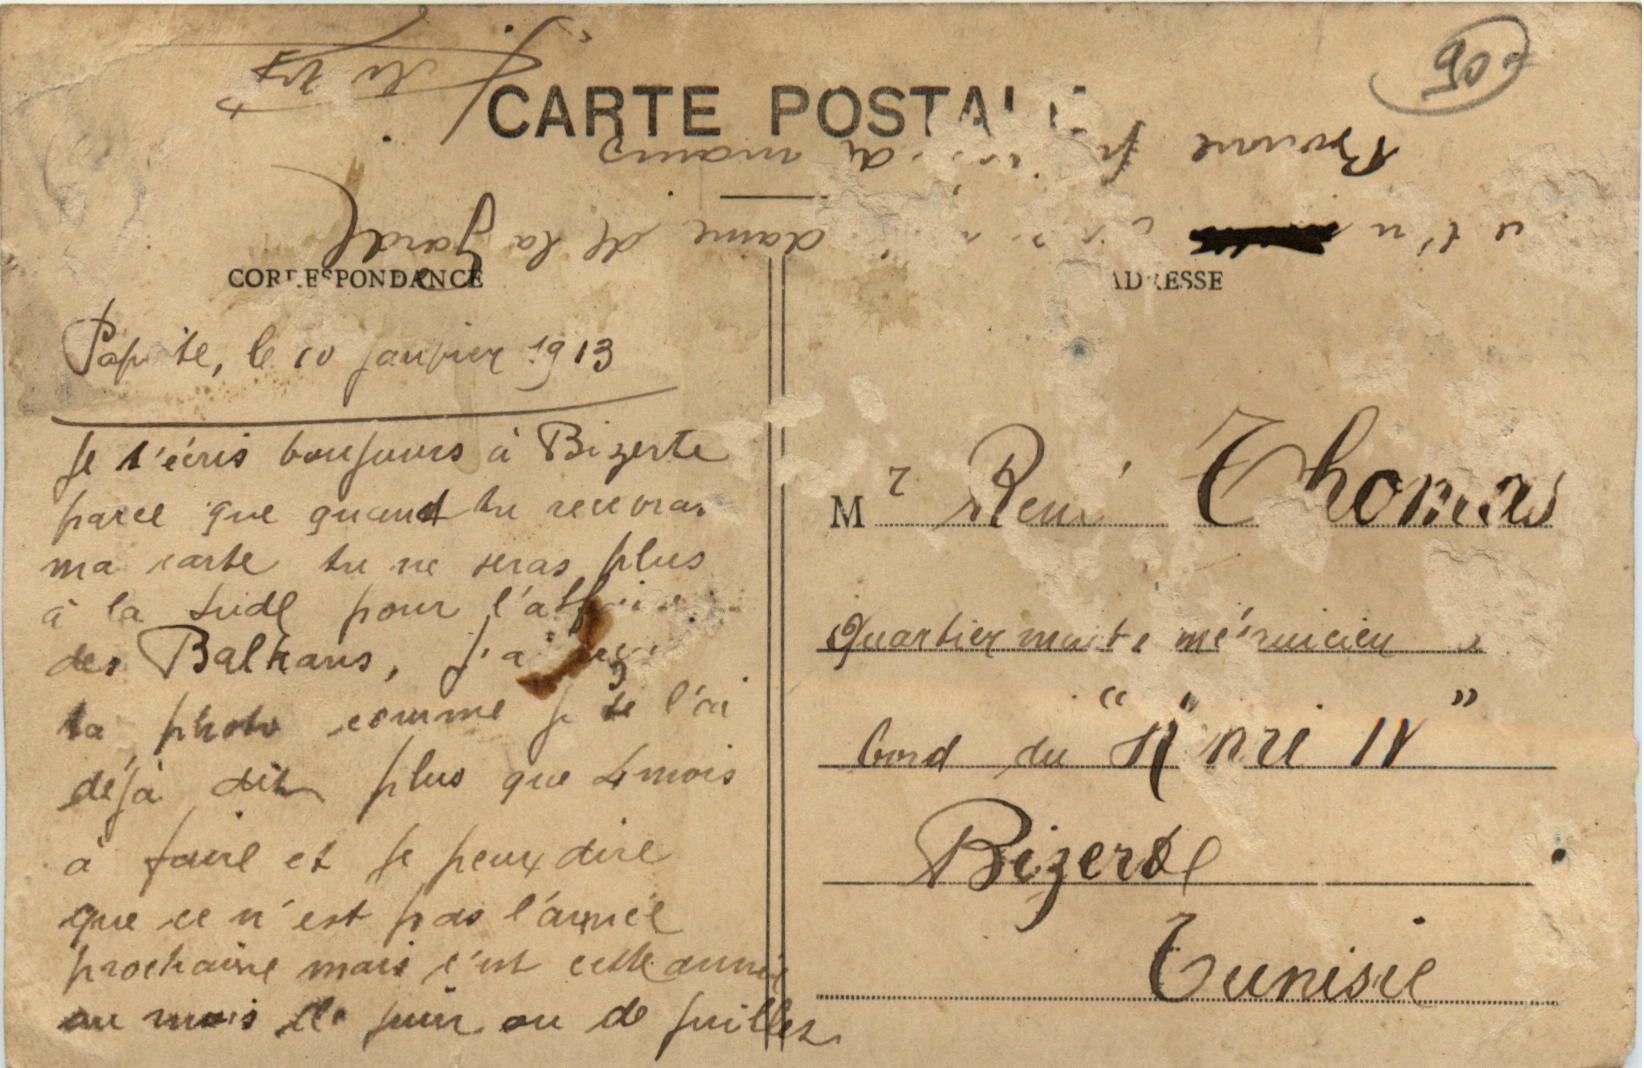 CARTE POSTAL
CORRESPONDANCE
ADRESSE
Papeite, le 10 janvier 1913
Je t'écris toujours à Bizerte
parce que quand tu recevras
ma carte tu ne seras plus
à la Sude pour l'affaire
des Balkans, j'ai
ta photo comme je te l'ai
déjà dit plus que 4 mois
à faire et je peux dire
que ce n'est pas l'année
prochaine mais c'est cette année
au mois de juin ou de juillet
Mr René Thomas
Quartier maitre mécanicien à
bord du "Henri IV"
Bizerte
Tunisie
Bonne
à moins
dame de la Garde